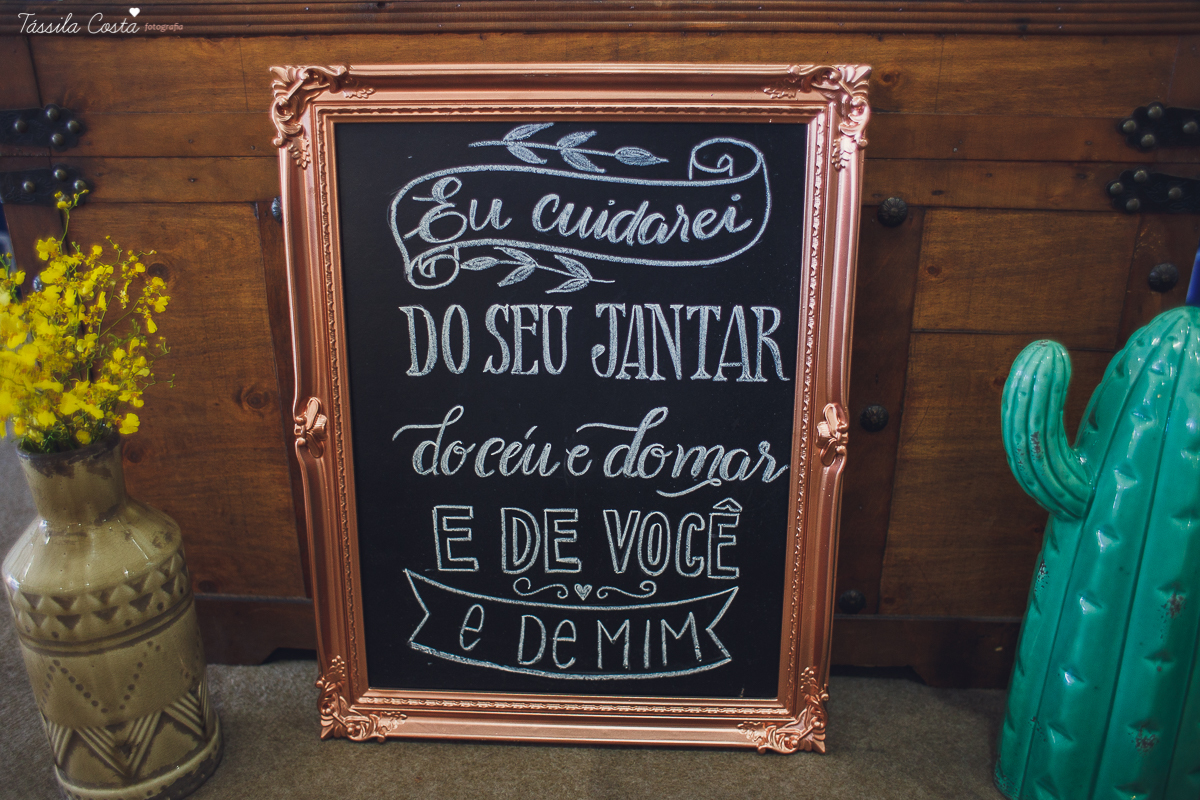 Tássila Costa fotografia
Eu cuidarei
DO SEU JANTAR
do céu e do mar
E DE VOCÊ
e De MIM